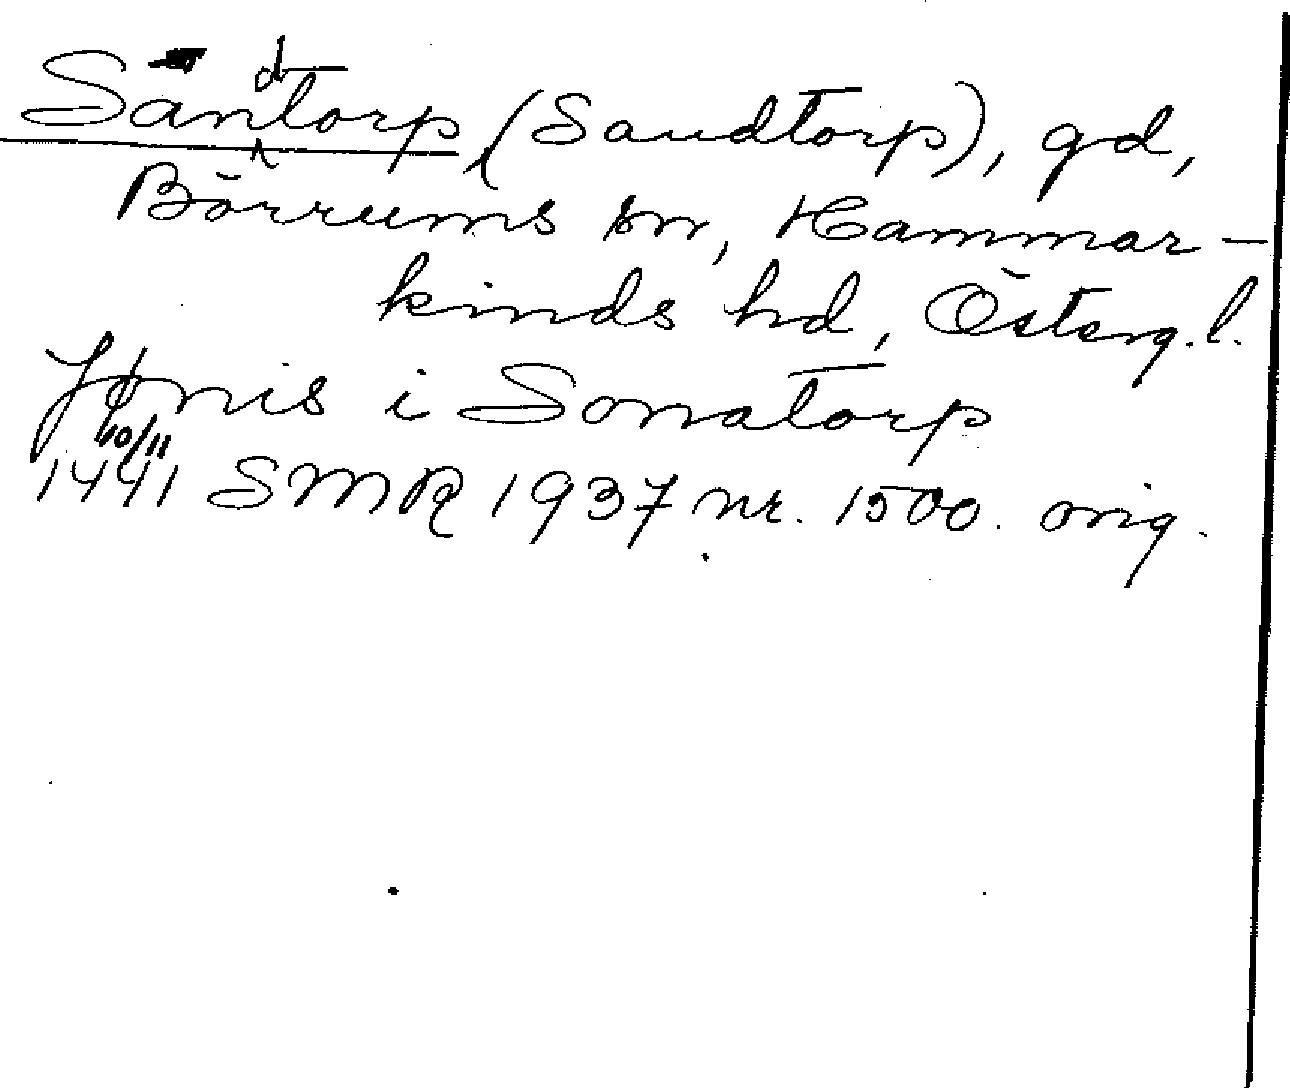 Sandtorp, (Sandtorp), gd,
Börrums sn, Hammar-
kinds hd, Österg.l.
Jønis i Sonatorp
10/11
1441 SMR 1937 nr. 1500. orig.